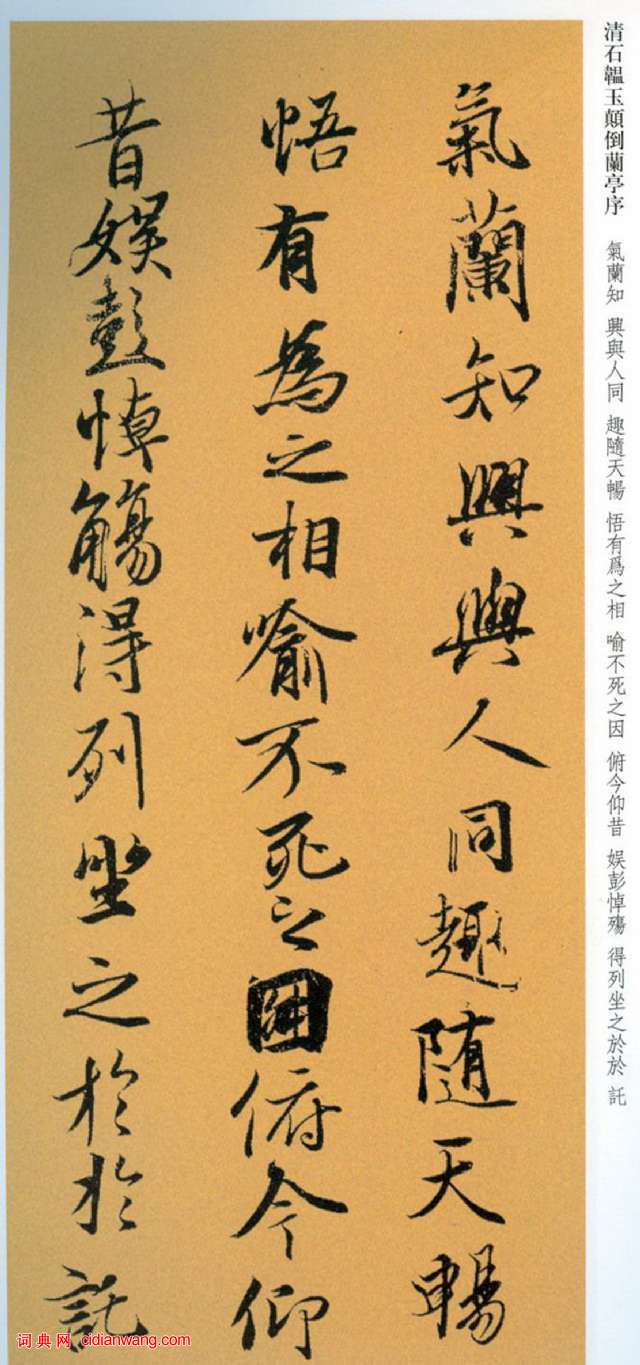 清石韞玉顛倒蘭亭序 氣蘭知 興與人同 趣隨天暢 悟有爲之相 喻不死之因 俯今仰昔 娛彭悼殤 得列坐之於於 託
氣蘭知興與人同趣隨天暢
悟有為之相喻不死之因俯今仰
昔娛彭悼觴得列坐之於於託
词典网 cidianwang.com